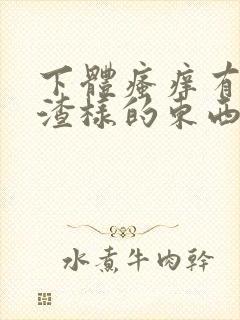 下體瘙癢有
渣樣的東西
水煮牛肉幹